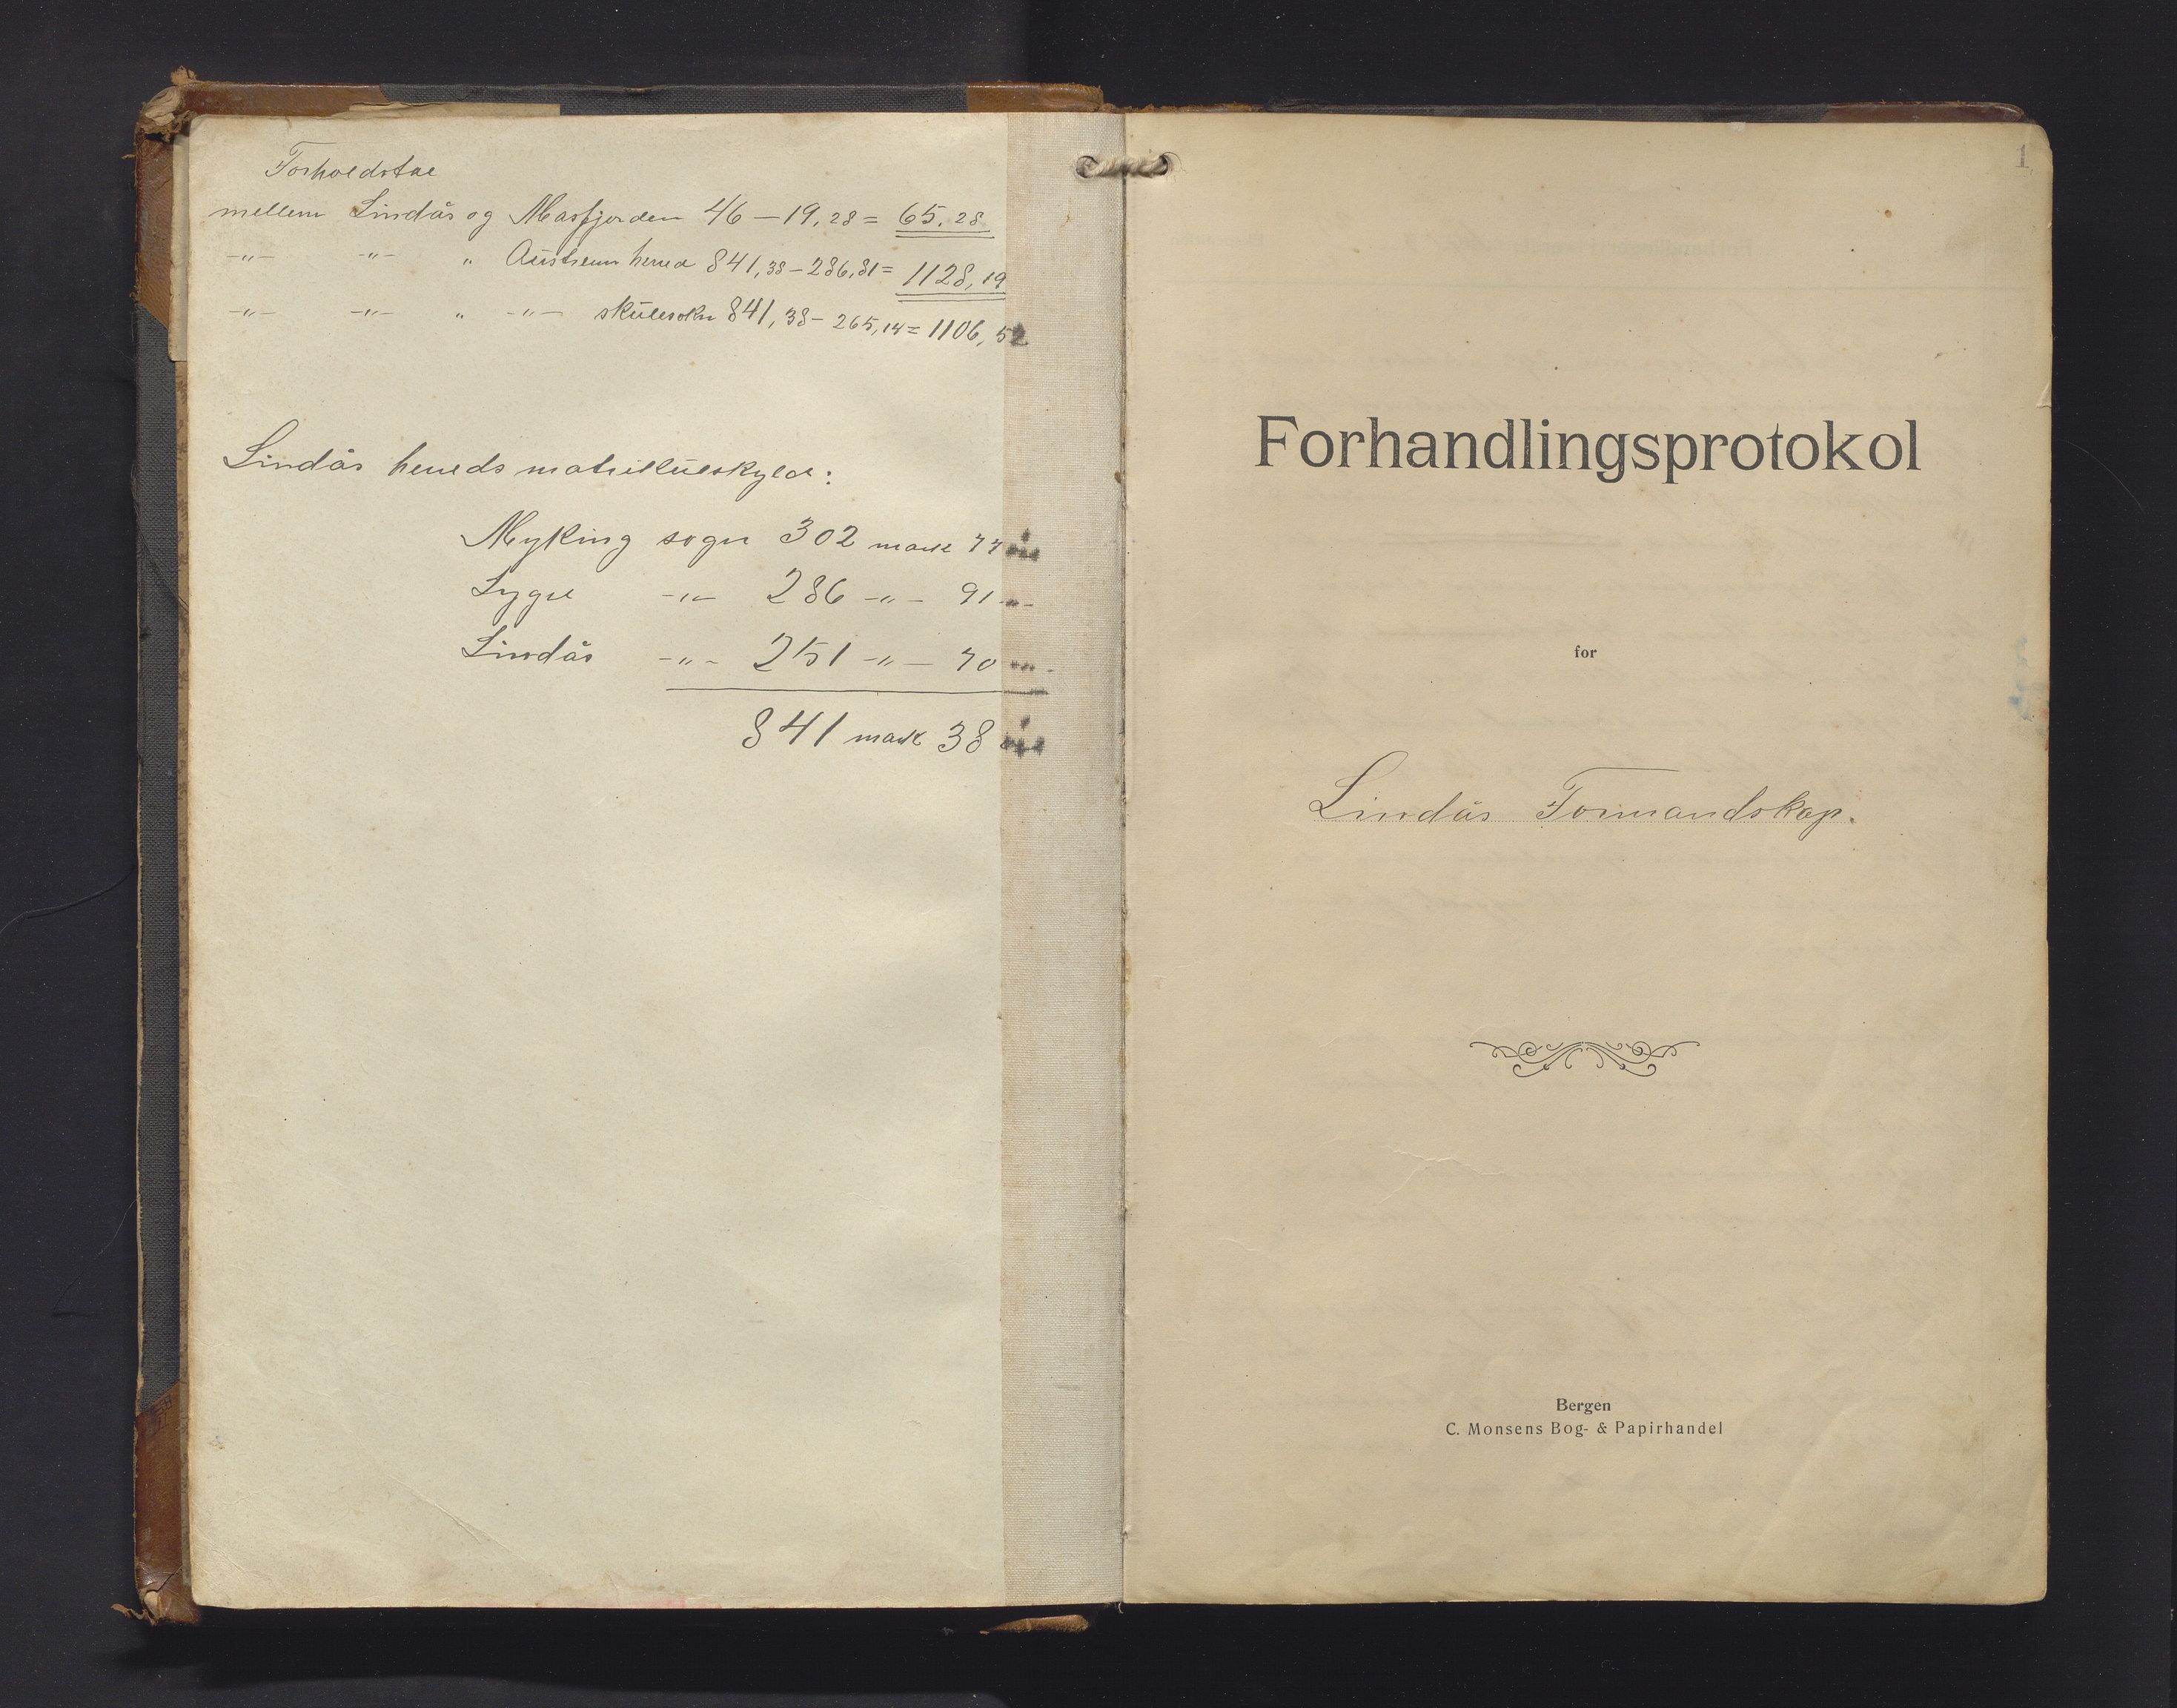 Forholdstal
mellem Lindås og Masfjorden 46 — 19,28 = 65,28
-"- -"- " Austreim hered 841,38 – 286,81 = 1128,19
-"- -"- " -"- skulesokn 841,38 – 265,14 = 1106,52
Lindås hereds matrikulskyld:
Myking sogn 302 mark 77 øre
Lygre -"- 286 -"- 91 -"-
Lindås -"- 251 -"- 70 -"-
841 mark 38 øre
1
Forhandlingsprotokol
for
Lindås Formandskap.
Bergen
C. Monsens Bog- & Papirhandel